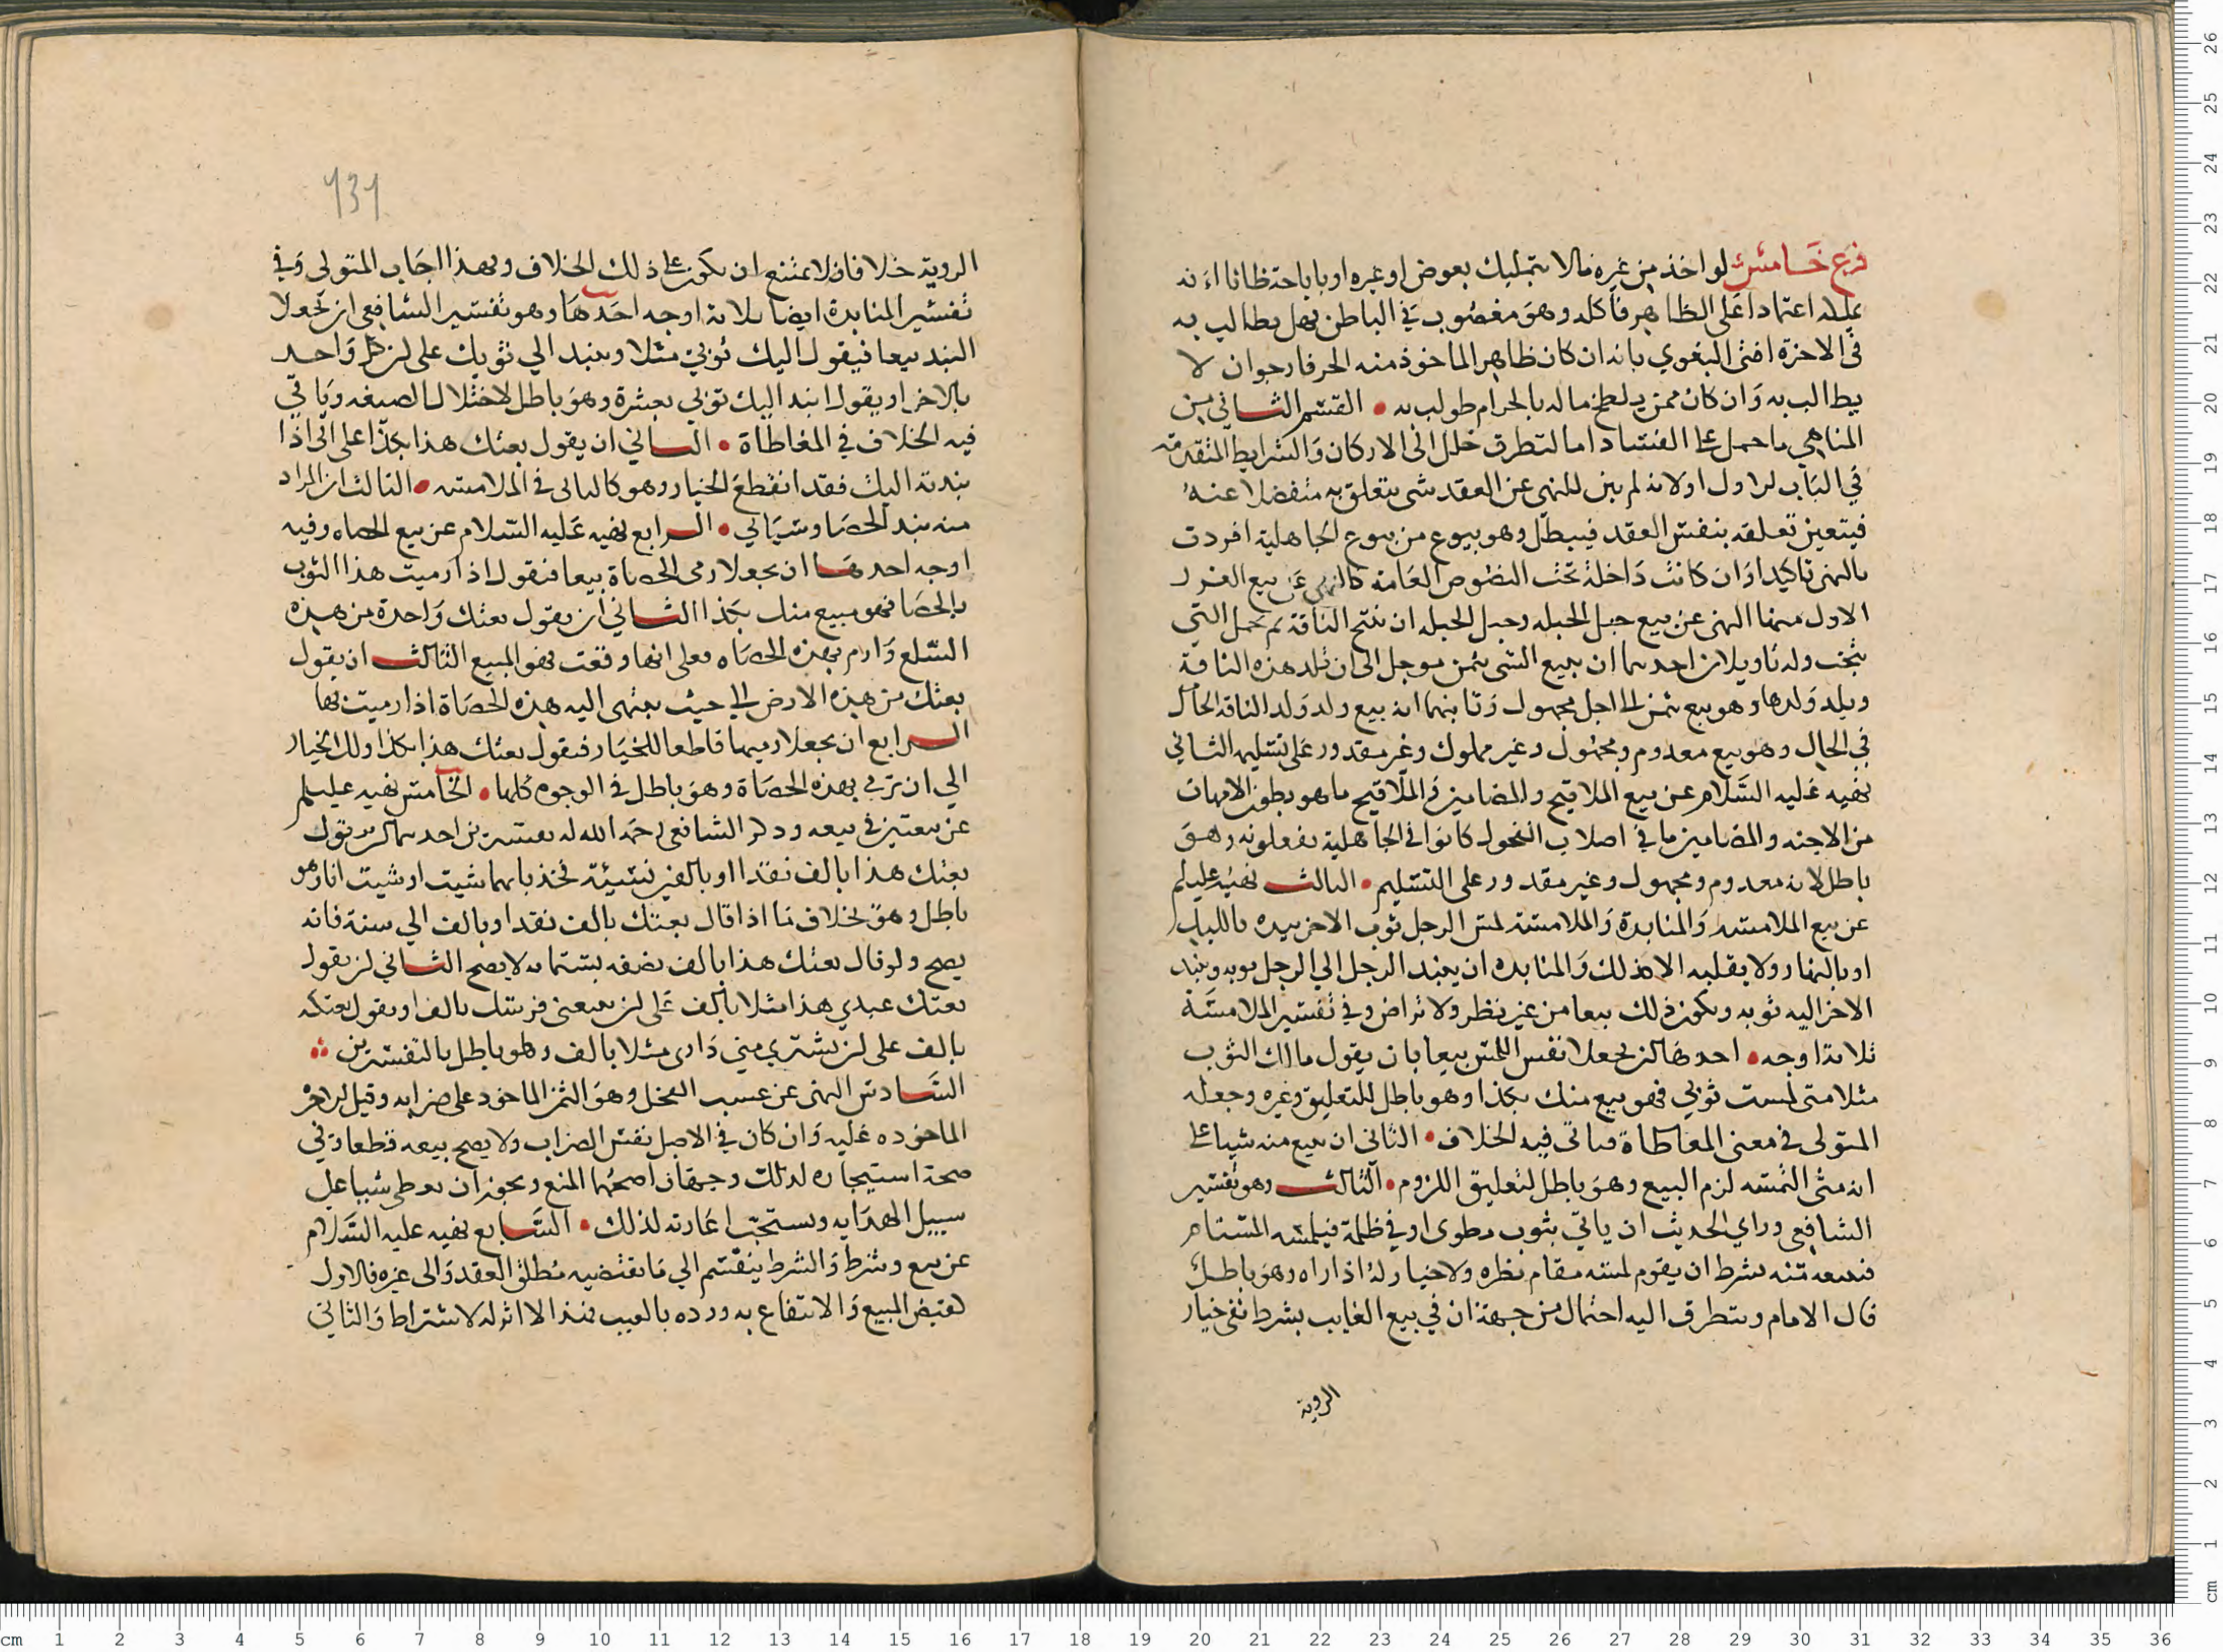 فرع خامس لو اخذ من غيره مالا بتمليك بعوض او غيره او باباحة ظانا انه
اعتمادا على الظاهر فاكله وهو مغصوب في الباطن فهل يطالب به
في الاخرة افتى البغوي بانه ان كان ظاهر الماخوذ منه الخير فارجو ان لا
يطالب به وان كان ممن يلطخ ماله بالحرام طولب به • القسم الثاني من
المناهي ما حمل على الفساد اما لتطرق خلل الى الاركان والشرايط المتقدمة
في الباب الاول او لانه لم يبن للنهي عن العقد شي يتعلق به منفصلا عنه
فيتعين تعلقه بنفس العقد فيبطل وهو بيوع من بيوع الجاهلية افردت
بالنهي تاكيدا وان كانت داخلة تحت النصوص العامة كالنهي عن بيع الغرر
الاول منها النهي عن بيع حبل الحبله وحبل الحبله ان تنتج الناقة ثم تحمل التي
نتجت وله تاويلان احدهما ان يبيع الشي بثمن موجل الى ان تلد هذه الناقة
ويلد ولدها وهو بيع بثمن الى اجل مجهول وثانيهما انه بيع ولد ولد الناقة الحامل
في الحال وهو بيع معدوم ومجهول وغير مملوك وغير مقدور على تسليمه الثاني
نهيه عليه السلام عن بيع الملاقيح والمضامين والملاقيح ما هو بطون الامهات
من الاجنه والمضامين ما في اصلاب الفحول كانوا في الجاهلية يفعلونه وهو
باطل لانه معدوم ومجهول وغير مقدور على التسليم • الثالث نهيه عليه السلم
عن بيع الملامسه والمنابذة والملامسة لمس الرجل ثوب الاخر بيده بالليل
او بالنهار ولا يقلبه الا بذلك والمنابذه ان ينبذ الرجل الي الرجل ثوبه وينبذ
الاخر اليه ثوبه ويكون ذلك بيعا من غير نظر ولا تراض وفي تفسير الملامسة
ثلاثة اوجه • احدها ان يجعلا نفس اللمس بيعا بان يقول مالك الثوب
مثلا متى لمست ثوبي فهو بيع منك بكذا وهو باطل للتعليق وغيره وجعله
المتولى في معنى المعاطاة فياتي فيه الخلاف • الثاني ان يبيع منه شيا على
انه متى لمسه لزم البيع وهو باطل لتعليق اللزوم • الثالث وهو تفسير
الشافعي وراي الحديث ان ياتي بثوب مطوى او في ظلمة فيلمسه المستام
فيبيعه منه بشرط ان يقوم لمسه مقام نظره ولا خيار له اذا راه وهو باطل
قال الامام ويتطرق اليه احتمال من جهة ان في بيع الغايب بشرط نفي خيار
الروية
الروية خلافا فلا يمتنع ان يكون على ذلك الخلاف وبهذا اجاب المتولى وفي
تفسير المنابذة ايضا ثلاثة اوجه احدها وهو تفسير الشافعي ان يجعلا
النبذ بيعا فيقول اليك ثوبي مثلا وينبذ الي ثوبك على ان كل واحد
بالاخر او يقول انبذ اليك ثوبي بعشرة وهو باطل لاختلال الصيغه وياتي
فيه الخلاف في المعاطاة • الثاني ان يقول بعتك هذا بكذا على اني اذا
نبذته اليك فقد انقطع الخيار وهو كالثاني في الملامسه • الثالث ان المراد
منه نبذ الحصا وسياتي • الرابع نهيه عليه السلام عن بيع الحصاه وفيه
اوجه احدها ان يجعلا رمى الحصاة بيعا فيقول اذا رميت هذا الثوب
بالحصا فهو مبيع منك بكذا الثاني ان يقول بعتك واحدة من هذه
السلع وارم بهذه الحصاه فعلى ايها وقعت فهو المبيع الثالث ان يقول
بعتك من هذه الارض الى حيث ينتهى اليه هذه الحصاة اذا رميت بها
الرابع ان يجعلا رميها قاطعا للخيار فيقول بعتك هذا بكذا ولك الخيار
الي ان ترمى بهذه الحصاة وهو باطل في الوجوه كلها • الخامس نهيه عليه السلم
عن بيعتين في بيعه وذكر الشافعي رحمه الله له تفسيرين احدهما ان يقول
بعتك هذا بالف نقدا او بالفين نسيئة فخذ بايهما شيت او شيت انا وهو
باطل وهو بخلاف ما اذا قال بعتك بالف نقدا وبالف الي سنة فانه
يصح ولو قال بعتك هذا بالف نصفه بستمايه لا يصح الثاني ان يقول
بعتك عبدي هذا مثلا بالف على ان تبيعني فرسك بالف او يقول بعتكه
بالف على ان تشتري مني داري مثلا بالف وهو باطل بالتفسيرين
السادس النهي عن عسب الفحل وهو الثمن الماخوذ على ضرابه وقيل الاجر
الماخوذه عليه وان كان في الاصل نفس الضراب ولا يصح بيعه قطعا وفي
صحة استيجاره لذلك وجهان اصحهما المنع ويجوز ان يعطى شيا على
سبيل الهدايه ويستحب اعارته لذلك • السابع نهيه عليه السلام
عن بيع وشرط والشرط ينقسم الي ما يقتضيه مطلق العقد والى غيره فالاول
كقبض المبيع والانتفاع به ورده بالعيب فهذا لا اثر له لاشتراط والثاني